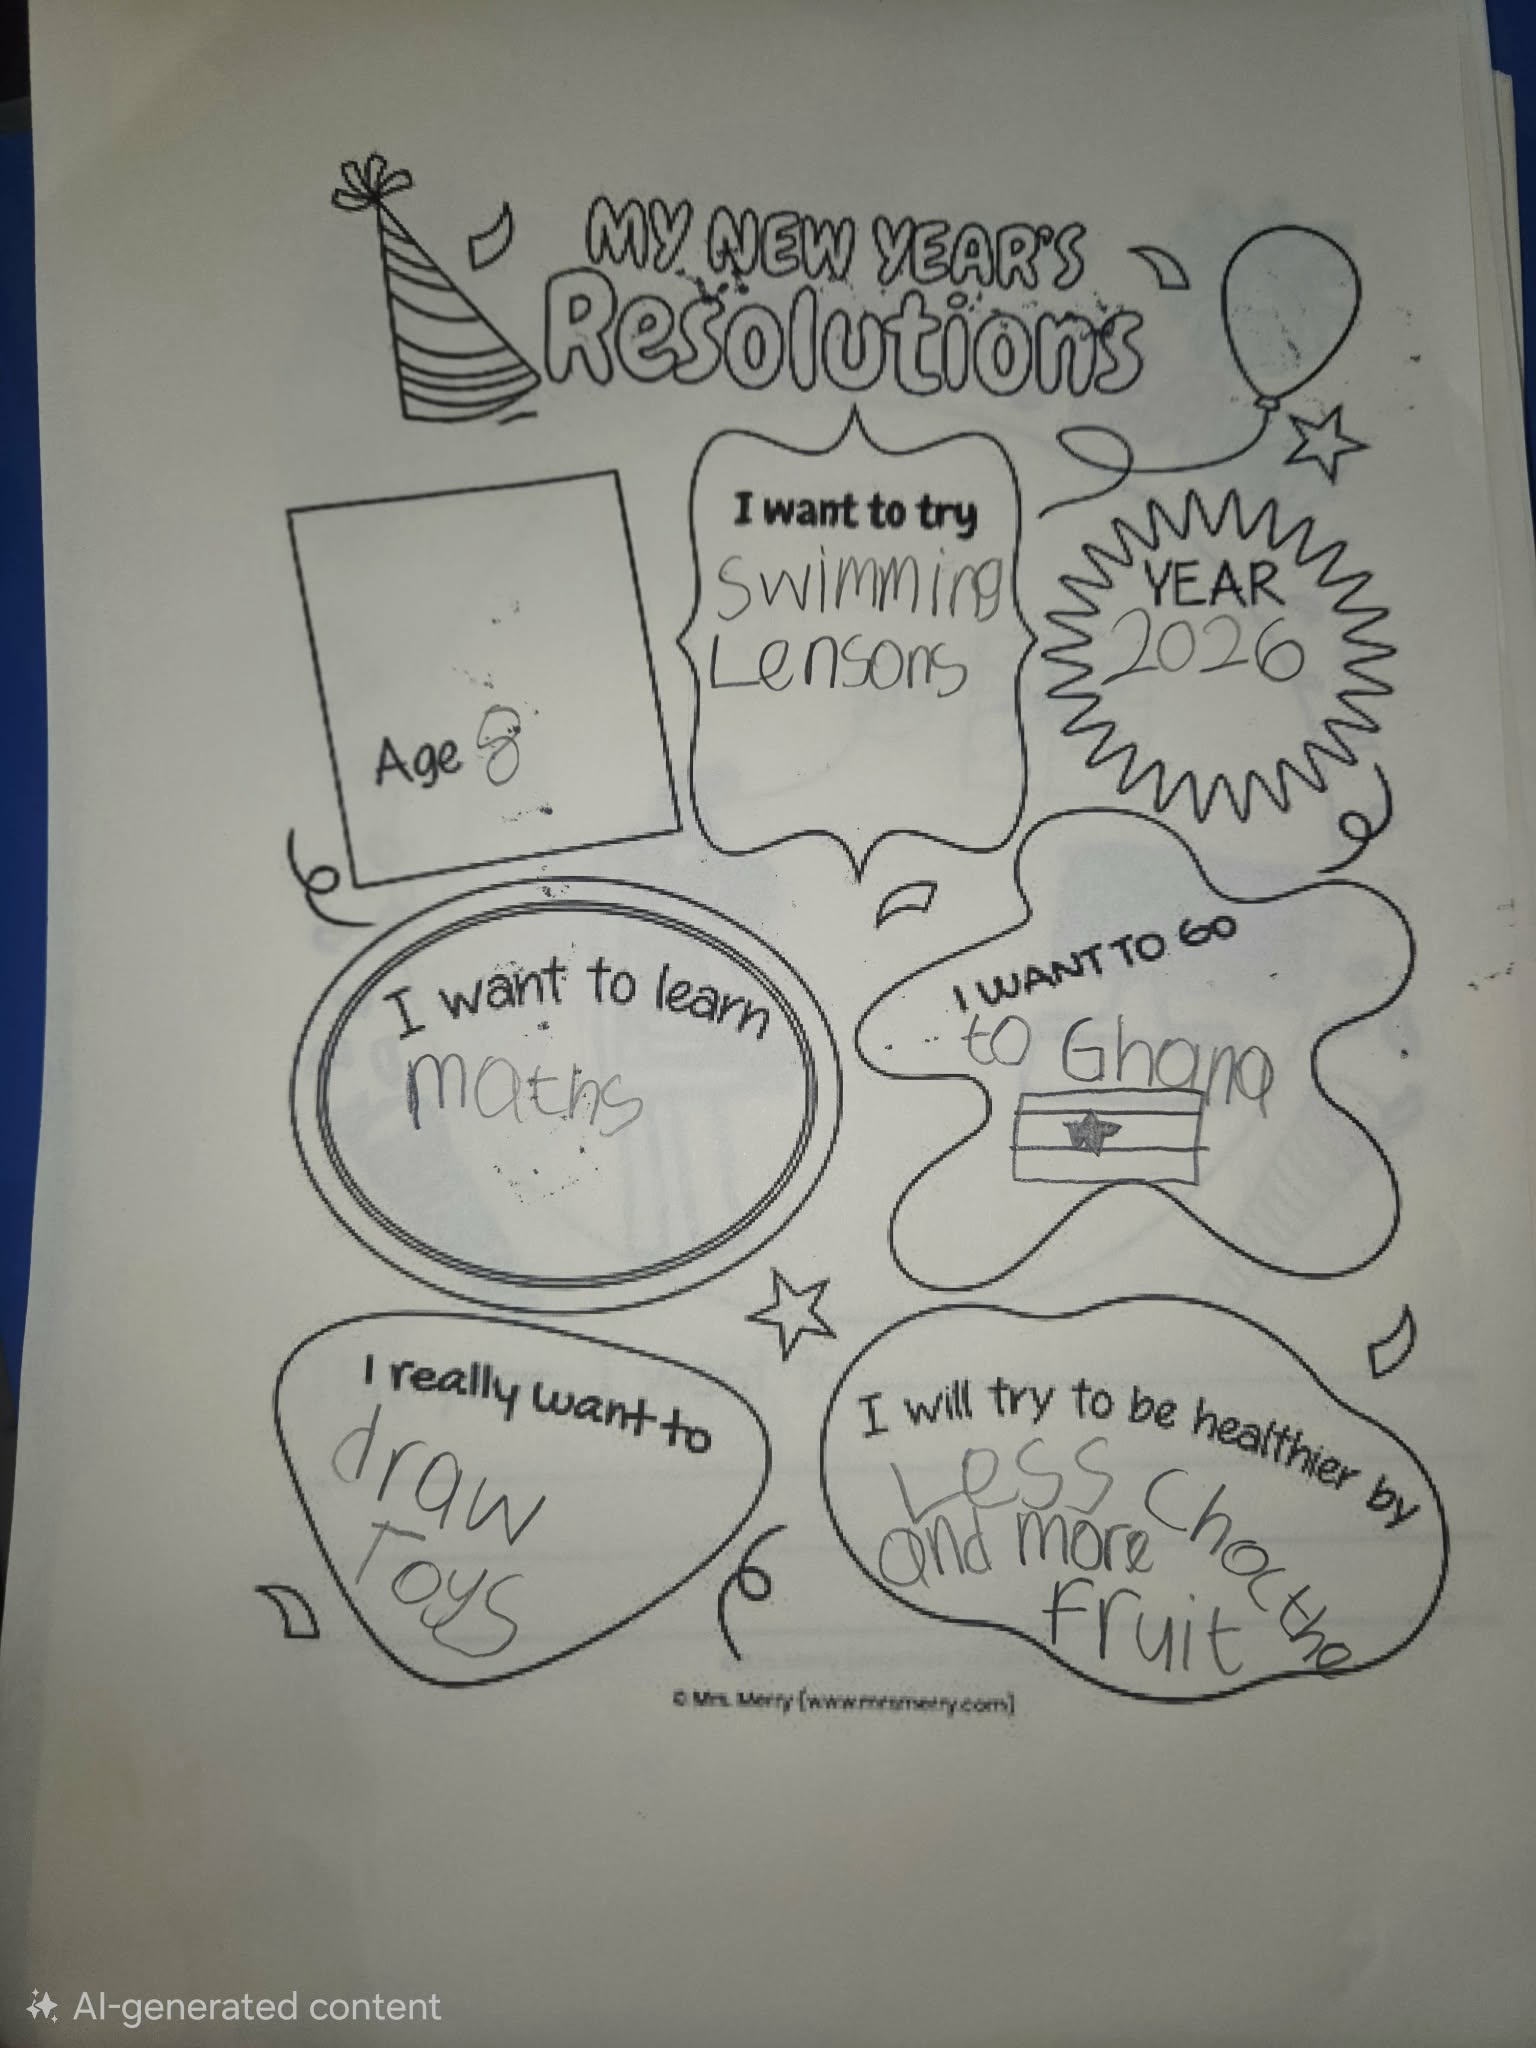 MY NEW YEAR'S
Resolutions
I want to try
swimming
Lensons
YEAR
2026
Age 8
I want to learn
maths
I WANT TO GO
to Ghana
I really want to
draw
Toys
I will try to be healthier by
Less
and more
fruit
© Mrs. Merry [www.mrsmerry.com]
AI-generated content